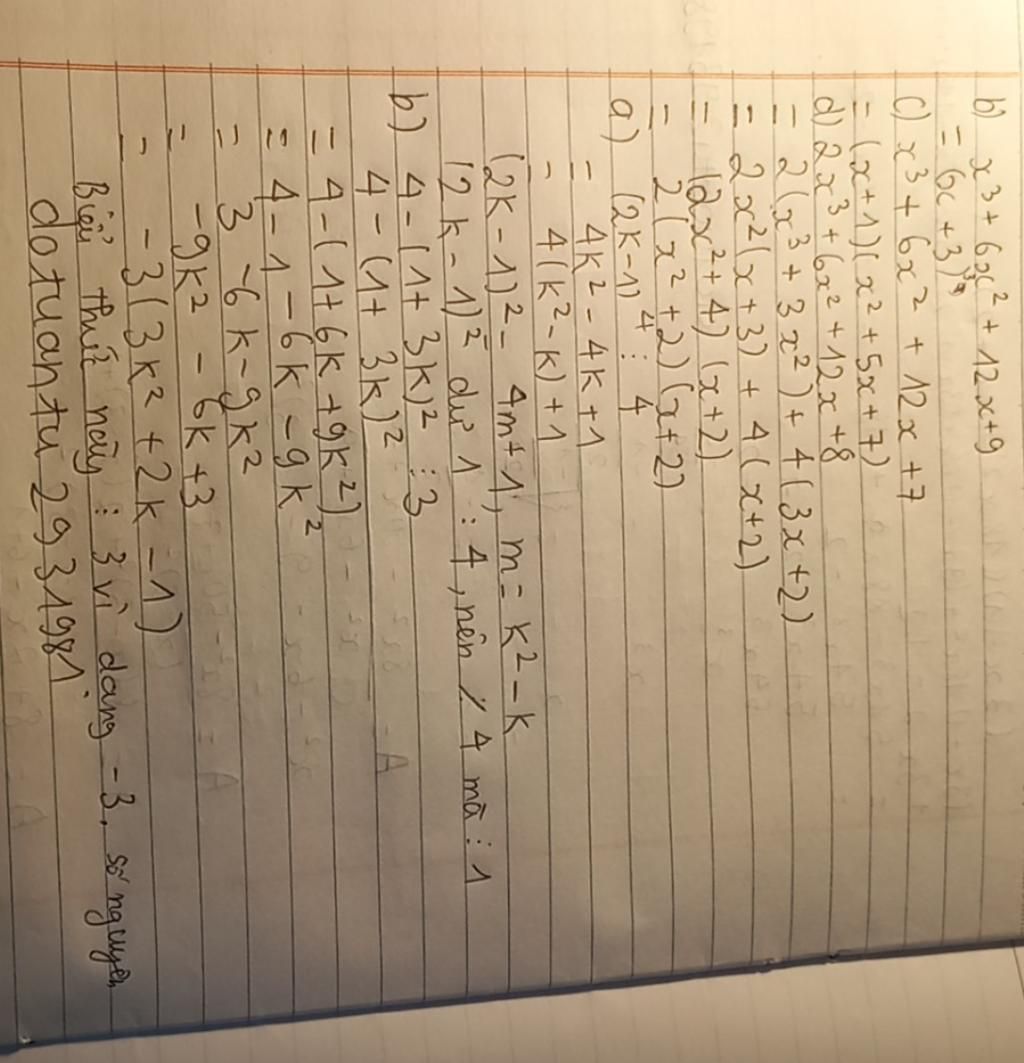 b) x³ + 6x² + 12x + 9
= (x + 3)³
c) x³ + 6x² + 12x + 7
= (x + 1)(x² + 5x + 7)
d) 2x³ + 6x² + 12x + 8
= 2(x³ + 3x²) + 4(3x + 2)
= 2x²(x + 3) + 4(x + 2)
= (2x² + 4)(x + 2)
= 2(x² + 2)(x + 2)
a) (2k - 1)⁴ : 4
= 4k² - 4k + 1
= 4(k² - k) + 1
(2k - 1)² = 4m + 1, m = k² - k
(2k - 1)² dư 1 : 4, nên ⋮̸ 4 mà : 1
b) 4 - (1 + 3k)² ⋮ 3
4 - (1 + 3k)²
= 4 - (1 + 6k + 9k²)
= 4 - 1 - 6k - 9k²
= 3 - 6k - 9k²
= -9k² - 6k + 3
= -3(3k² + 2k - 1)
Biểu thức này ⋮ 3 vì dang -3. số nguyên
dotuantu2931981.